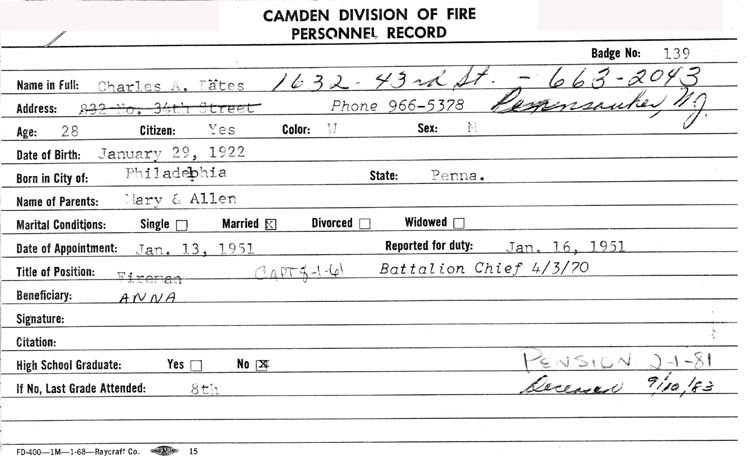 CAMDEN DIVISION OF FIRE
PERSONNEL RECORD
Badge No: 139
Name in Full: Charles A. Bates 1632 - 43rd St. - 663-2043
Address: 832 No. 34th Street Phone 966-5378 Pennsauken, N.J.
Age: 28 Citizen: Yes Color: W Sex: M
Date of Birth: January 29, 1922
Born in City of: Philadelphia State: Penna.
Name of Parents: Mary & Allen
Marital Conditions: Single ☐ Married ☒ Divorced ☐ Widowed ☐
Date of Appointment: Jan. 13, 1951 Reported for duty: Jan. 16, 1951
Title of Position: Fireman CAPT 8-1-61 Battalion Chief 4/3/70
Beneficiary: ANNA
Signature:
Citation:
High School Graduate: Yes ☐ No ☒ PENSION 2-1-81
If No, Last Grade Attended: 8th Deceased 9/10/83
FD-400—1M—1-68—Raycraft Co. 15